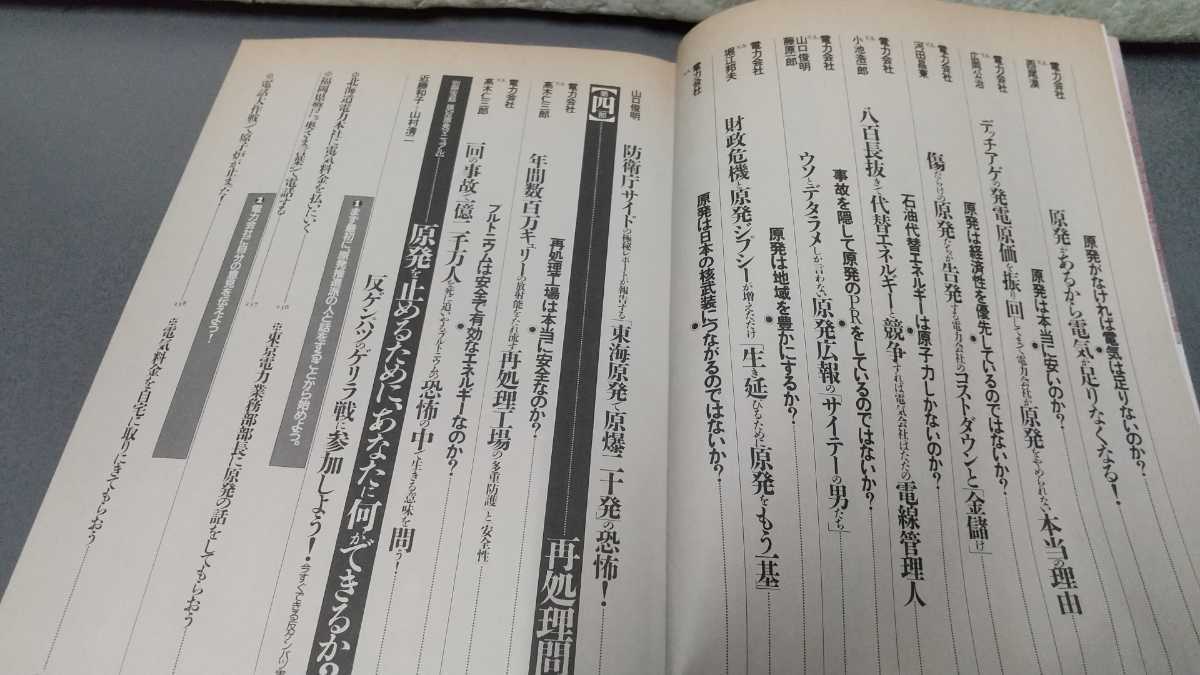 原発がなければ電気は足りないのか?
電力会社
VS.
西尾漠
原発があるから電気が足りなくなる!
原発は本当に安いのか?
電力会社
VS.
広岡公治
デッチアゲの発電原価を振り回してもうべ電力会社が原発をやめられない本当の理由
原発は経済性を優先しているのではないか?
電力会社
VS.
河田昌東
傷だらけの原発たちが告発する電力会社のコストダウンと「金儲け」
石油代替エネルギーは原子力しかないのか?
電力会社
VS.
小池浩一郎
八百長抜きで代替エネルギーと競争すれば電気会社はただの電線管理人
事故を隠して原発のPRをしているのではないか?
電力会社
VS.
山口俊明
藤原一郎
ウソとデタラメしか言わない原発広報の「サイテーの男たち」
原発は地域を豊かにするか?
電力会社
VS.
堀江邦夫
財政危機と原発ジプシーが増えただけ「生き延びるために原発をもう一基」
原発は日本の核武装につながるのではないか?
電力会社
VS.
山口俊明
防衛庁サイドの極秘レポートが報告する「東海原発で原爆二十発」の恐怖!
第四部
再処理問
再処理工場は本当に安全なのか?
電力会社
VS.
高木仁三郎
年間数百万キュリーの放射能をたれ流す「再処理工場の多重防護」と安全性
プルトニウムは安全で有効なエネルギーなのか?
電力会社
VS.
高木仁三郎
一回の事故で一億二千万人を死に追いやるプルトニウムの恐怖の中で生きる意味を問う!
原発を止めるために、あなたに何ができるか?
近藤和子・山村清二
反ゲンパツのゲリラ戦に参加しよう!今すぐできる反ゲンパツ
1 まず最初に原発推進派の人と話をすることから始めよう。
☎北海道電力本社に電気料金を払いにいく
216
☎東京電力業務部部長に原発の話をしてもらおう
☎福岡県庁に奥さまが暴で電話する
217
2 電力会社に自分の意見を伝えよう!
☎電話大作戦で原子炉が止まった!
218
☎電気料金を自宅に取りにきてもらおう